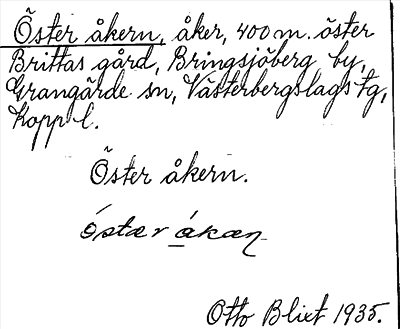 Öster åkern, åker, 400 m. öster
Brittas gård, Bringsjöberg by,
Grangärde sn, Västerbergslags tg,
Kopp. l.
Öster åkern.
óstær ákæṇ
Otto Blixt 1935.